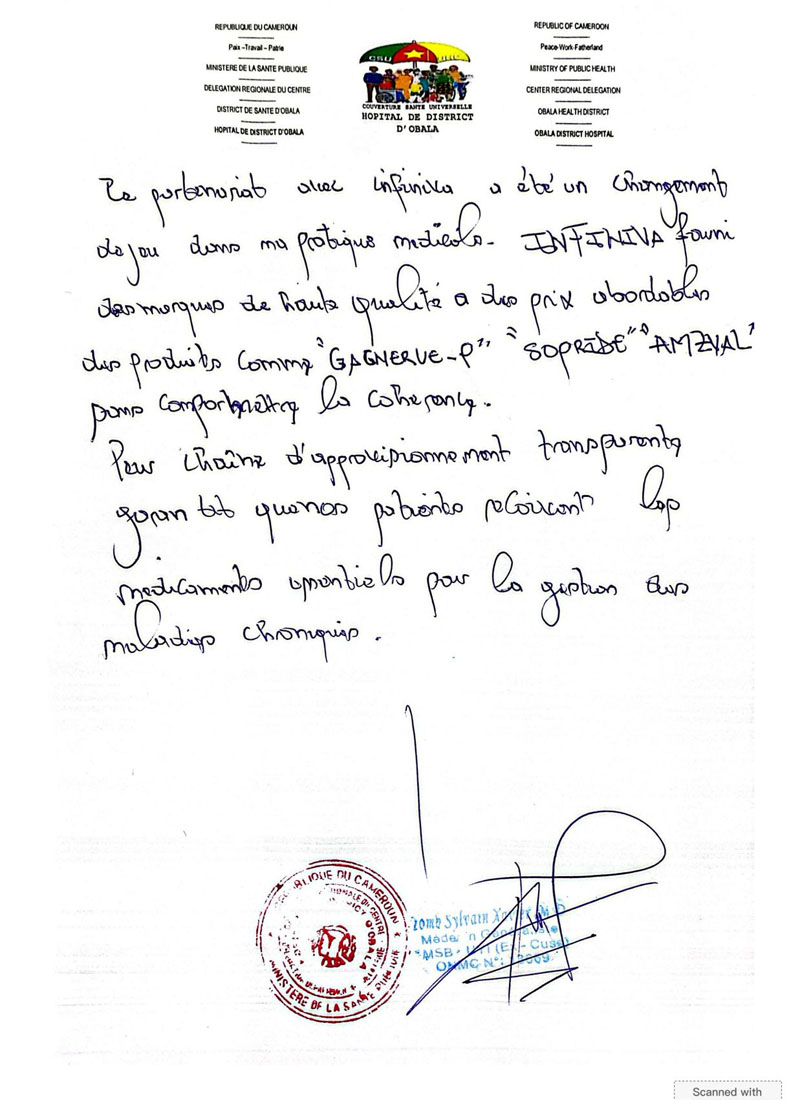 REPUBLIQUE DU CAMEROUN
Paix –Travail – Patrie
MINISTERE DE LA SANTE PUBLIQUE
DELEGATION REGIONALE DU CENTRE
DISTRICT DE SANTE D'OBALA
HOPITAL DE DISTRICT D'OBALA
COUVERTURE SANTE UNIVERSELLE
HOPITAL DE DISTRICT
D' OBALA
REPUBLIC OF CAMEROON
Peace-Work-Fatherland
MINISTRY OF PUBLIC HEALTH
CENTER REGIONAL DELEGATION
OBALA HEALTH DISTRICT
OBALA DISTRICT HOSPITAL
Le partenariat avec infiniva a été un changement
de jeu dans ma pratique médicale. INFINIVA fourni
des marques de haute qualité a des prix abordables
des produits comme "GAGNERVE-P" "SOPRIDE" "AMZVAL"
sans compromettre la coherence.
chaîne d'approvisionnement transparente
garantit que nos patients reçoivent les
medicaments essentiels pour la gestion des
maladies chroniques.
REPUBLIQUE DU CAMEROUN
MINISTERE DE LA SANTE PUBLIQUE
Sylvain
Scanned with